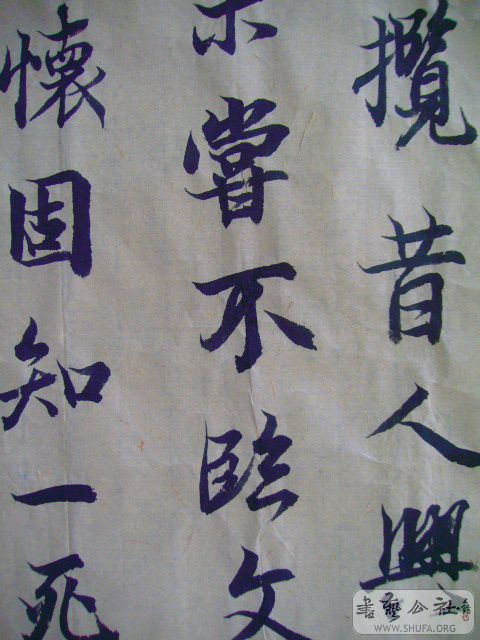 攬昔人興
未嘗不臨文
懷固知一死
書藝公社
WWW.SHUFA.ORG